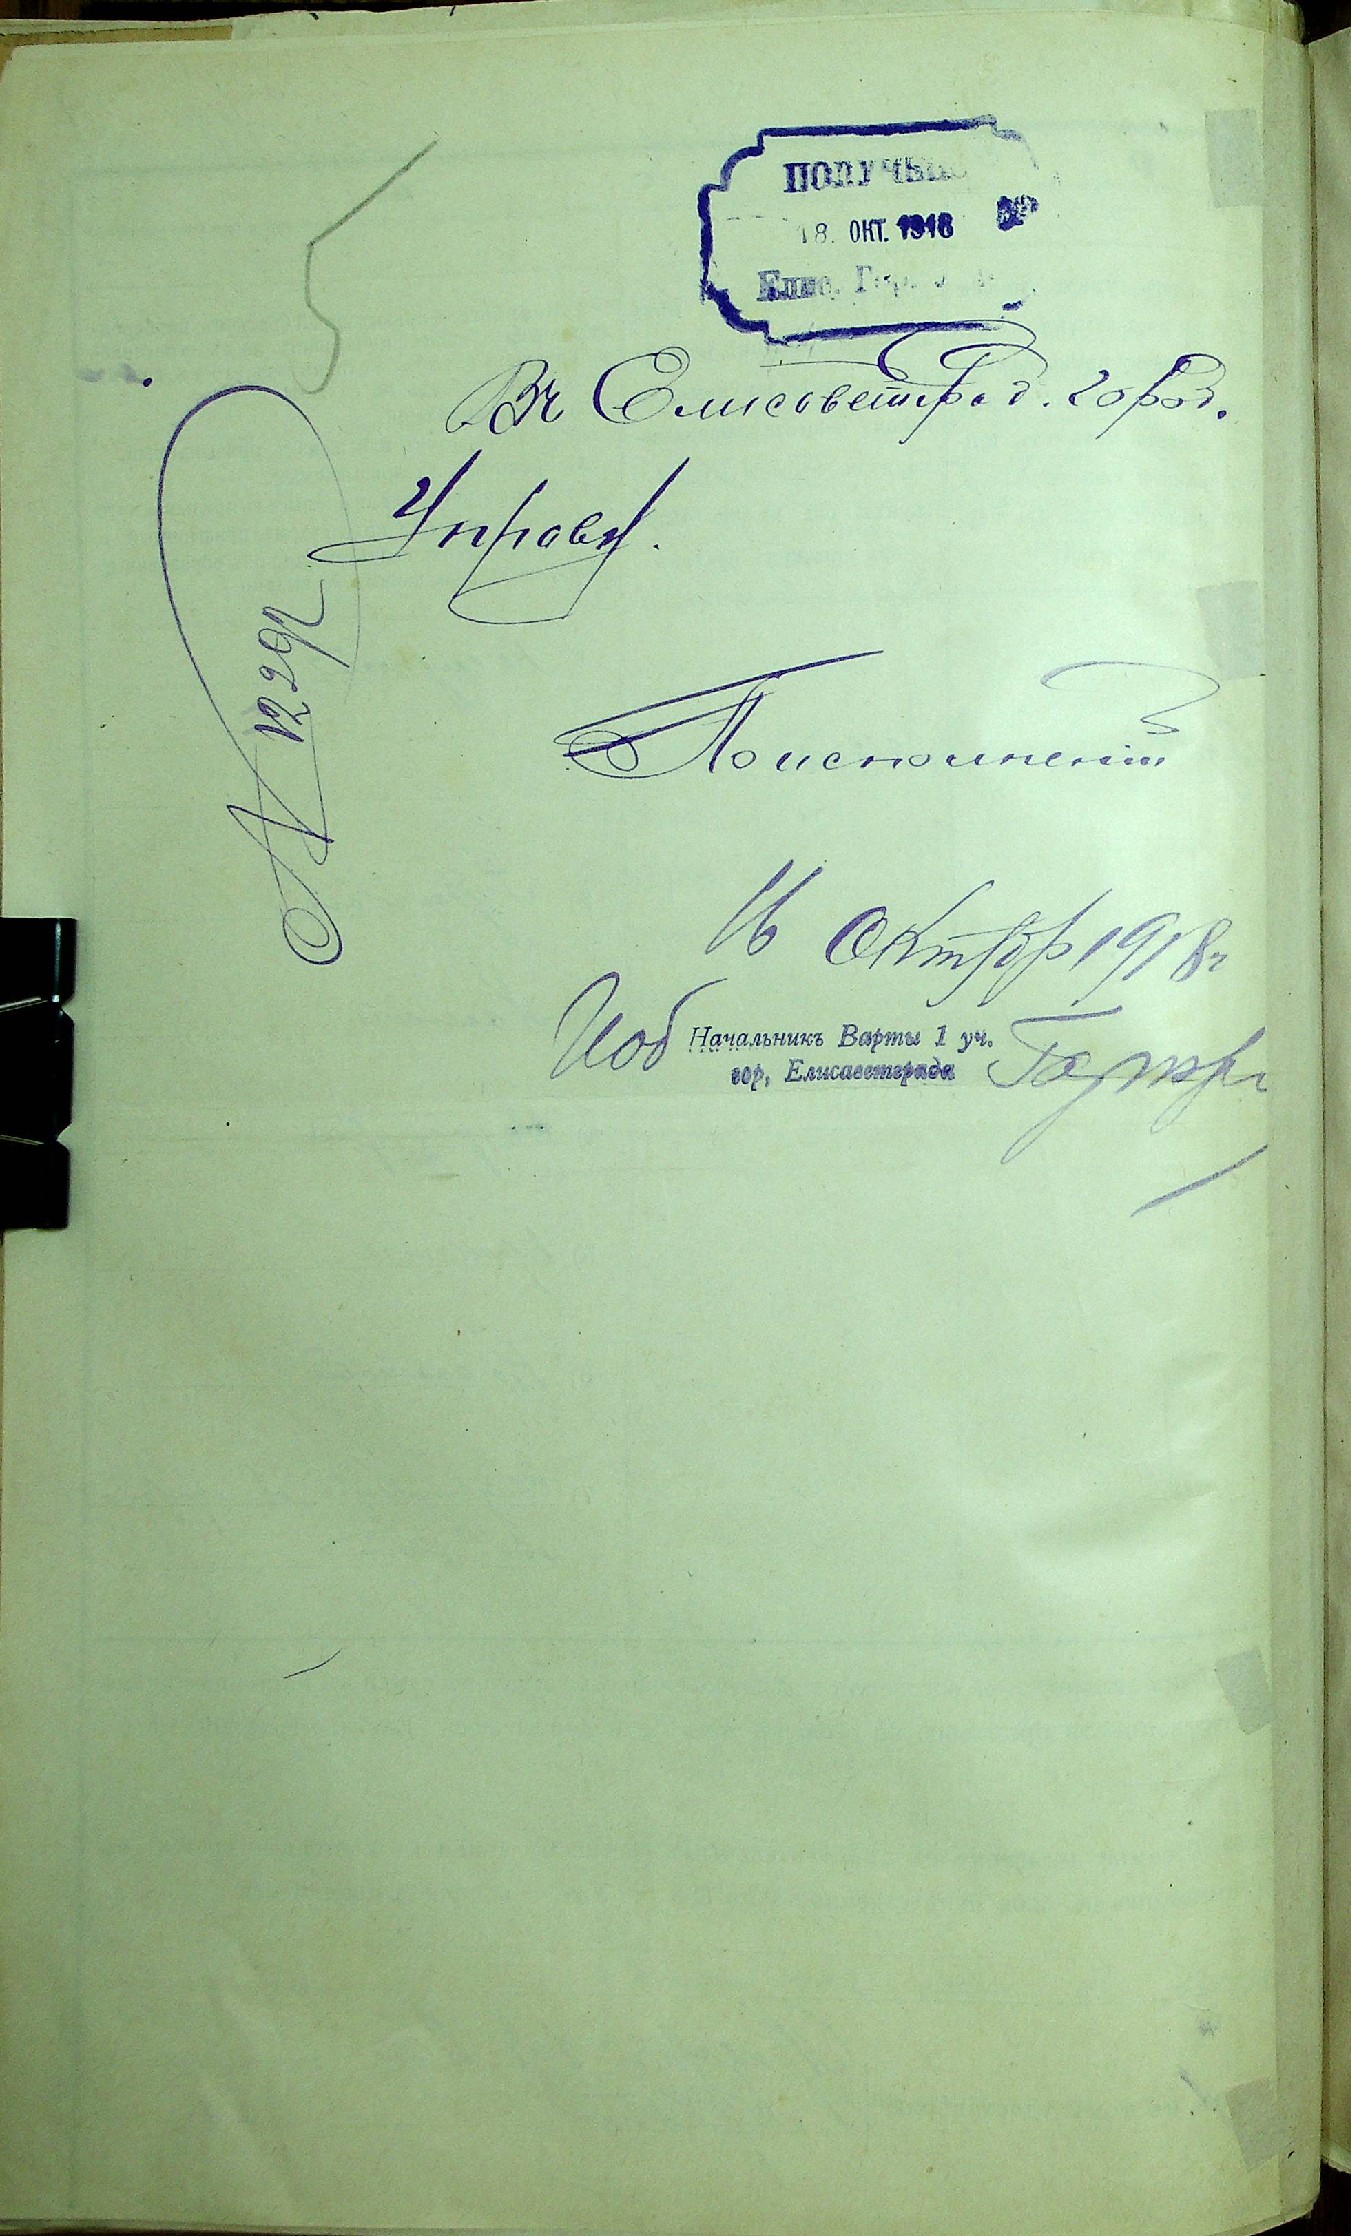 ПОЛУЧЕНО
18. ОКТ. 1918
Елис. Гор.
Въ Елисаветград. город.
Управу.
№ 12292
По исполнении
16 Октябр 1918 г
Исоб Начальникъ Варты 1 уч.
гор. Елисаветграда